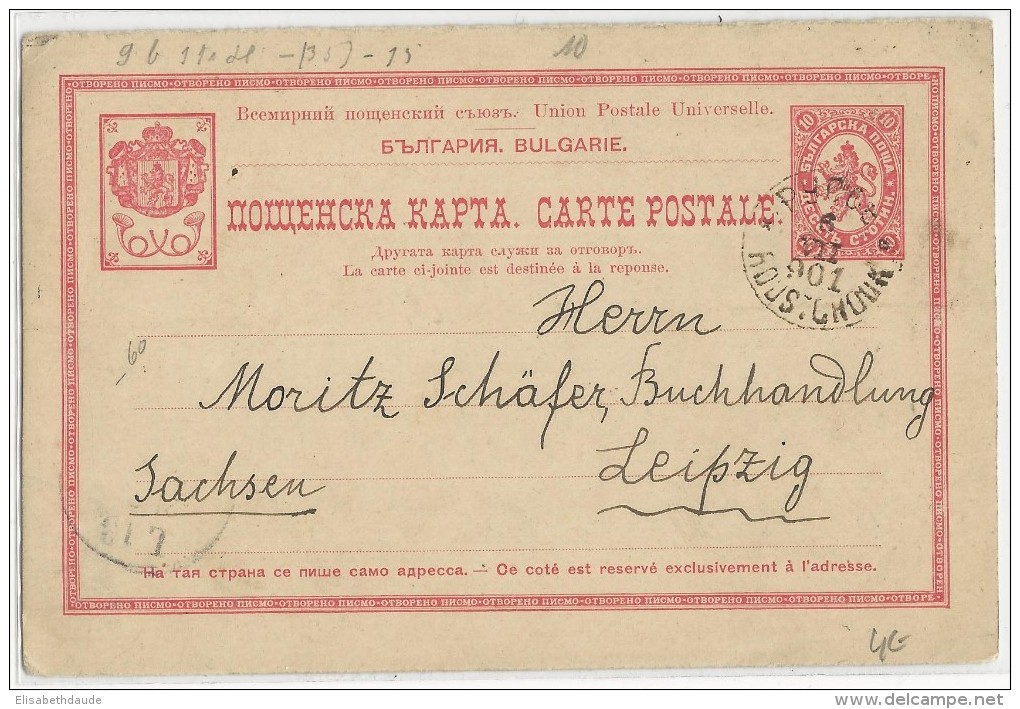 10
ОТВОРЕНО ПИСМО
Всемирний пощенский съюзъ. Union Postale Universelle.
БЪЛГАРИЯ. BULGARIE.
10 10
БЪЛГАРСКА ПОЩА
СТОТИНКИ
ПОЩЕНСКА КАРТА. CARTE POSTALE
Другата карта служи за отговоръ.
La carte ci-jointe est destinée à la reponse.
901
ROUSTCHOUK
Herrn
60
Moritz Schäfer, Buchhandlung
Leipzig
Sachsen
На тая страна се пише само адресса. — Ce coté est reservé exclusivement à l'adresse.
Elisabethdaude
www.delcampe.net